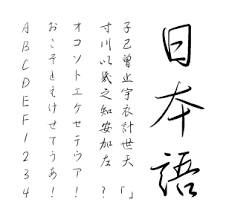 日本語
子己曽止宇衣計世天「」
寸川以幾之知安加左?
オコソトエケセテウア!
おこそとえけせてうあ!
ABCDEF1234